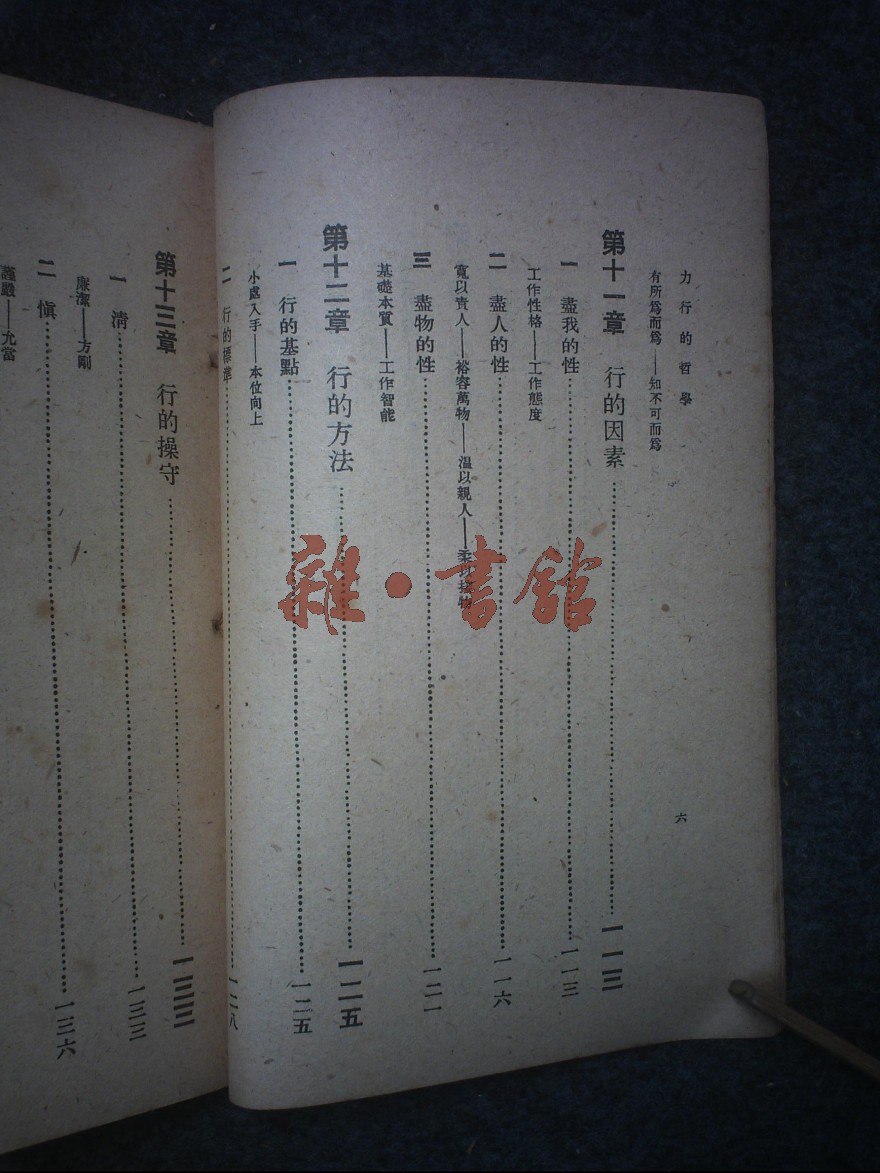 力行的哲學
六
有所爲而爲——知不可而爲
第十一章 行的因素……一一三
一 盡我的性……一一三
工作性格——工作態度
二 盡人的性……一一六
寬以責人——裕容萬物——溫以親人——柔以接物
三 盡物的性……一二一
基礎本質——工作智能
第十二章 行的方法……一二五
一 行的基點……一二五
小處入手——本位向上
二 行的標準……一二八
第十三章 行的操守……一三三
一 清……一三三
廉潔——方剛
二 愼……一三六
謹嚴——允當
雜·書館